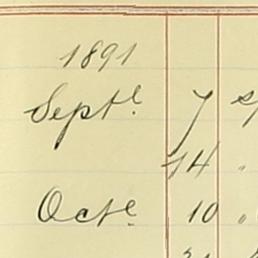 1891
Septe. 7
14 "
Octe. 10 "